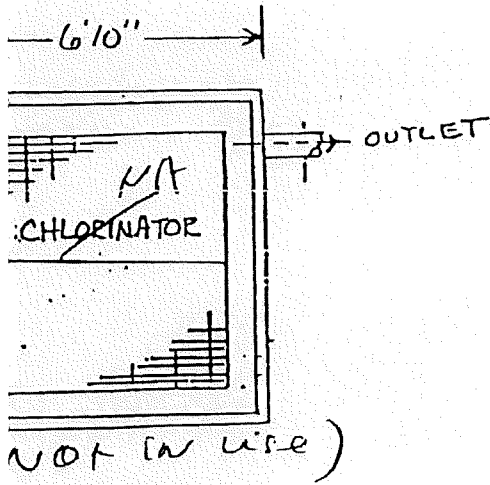 6'10"
OUTLET
NA
:CHLORINATOR
NOT IN USE)